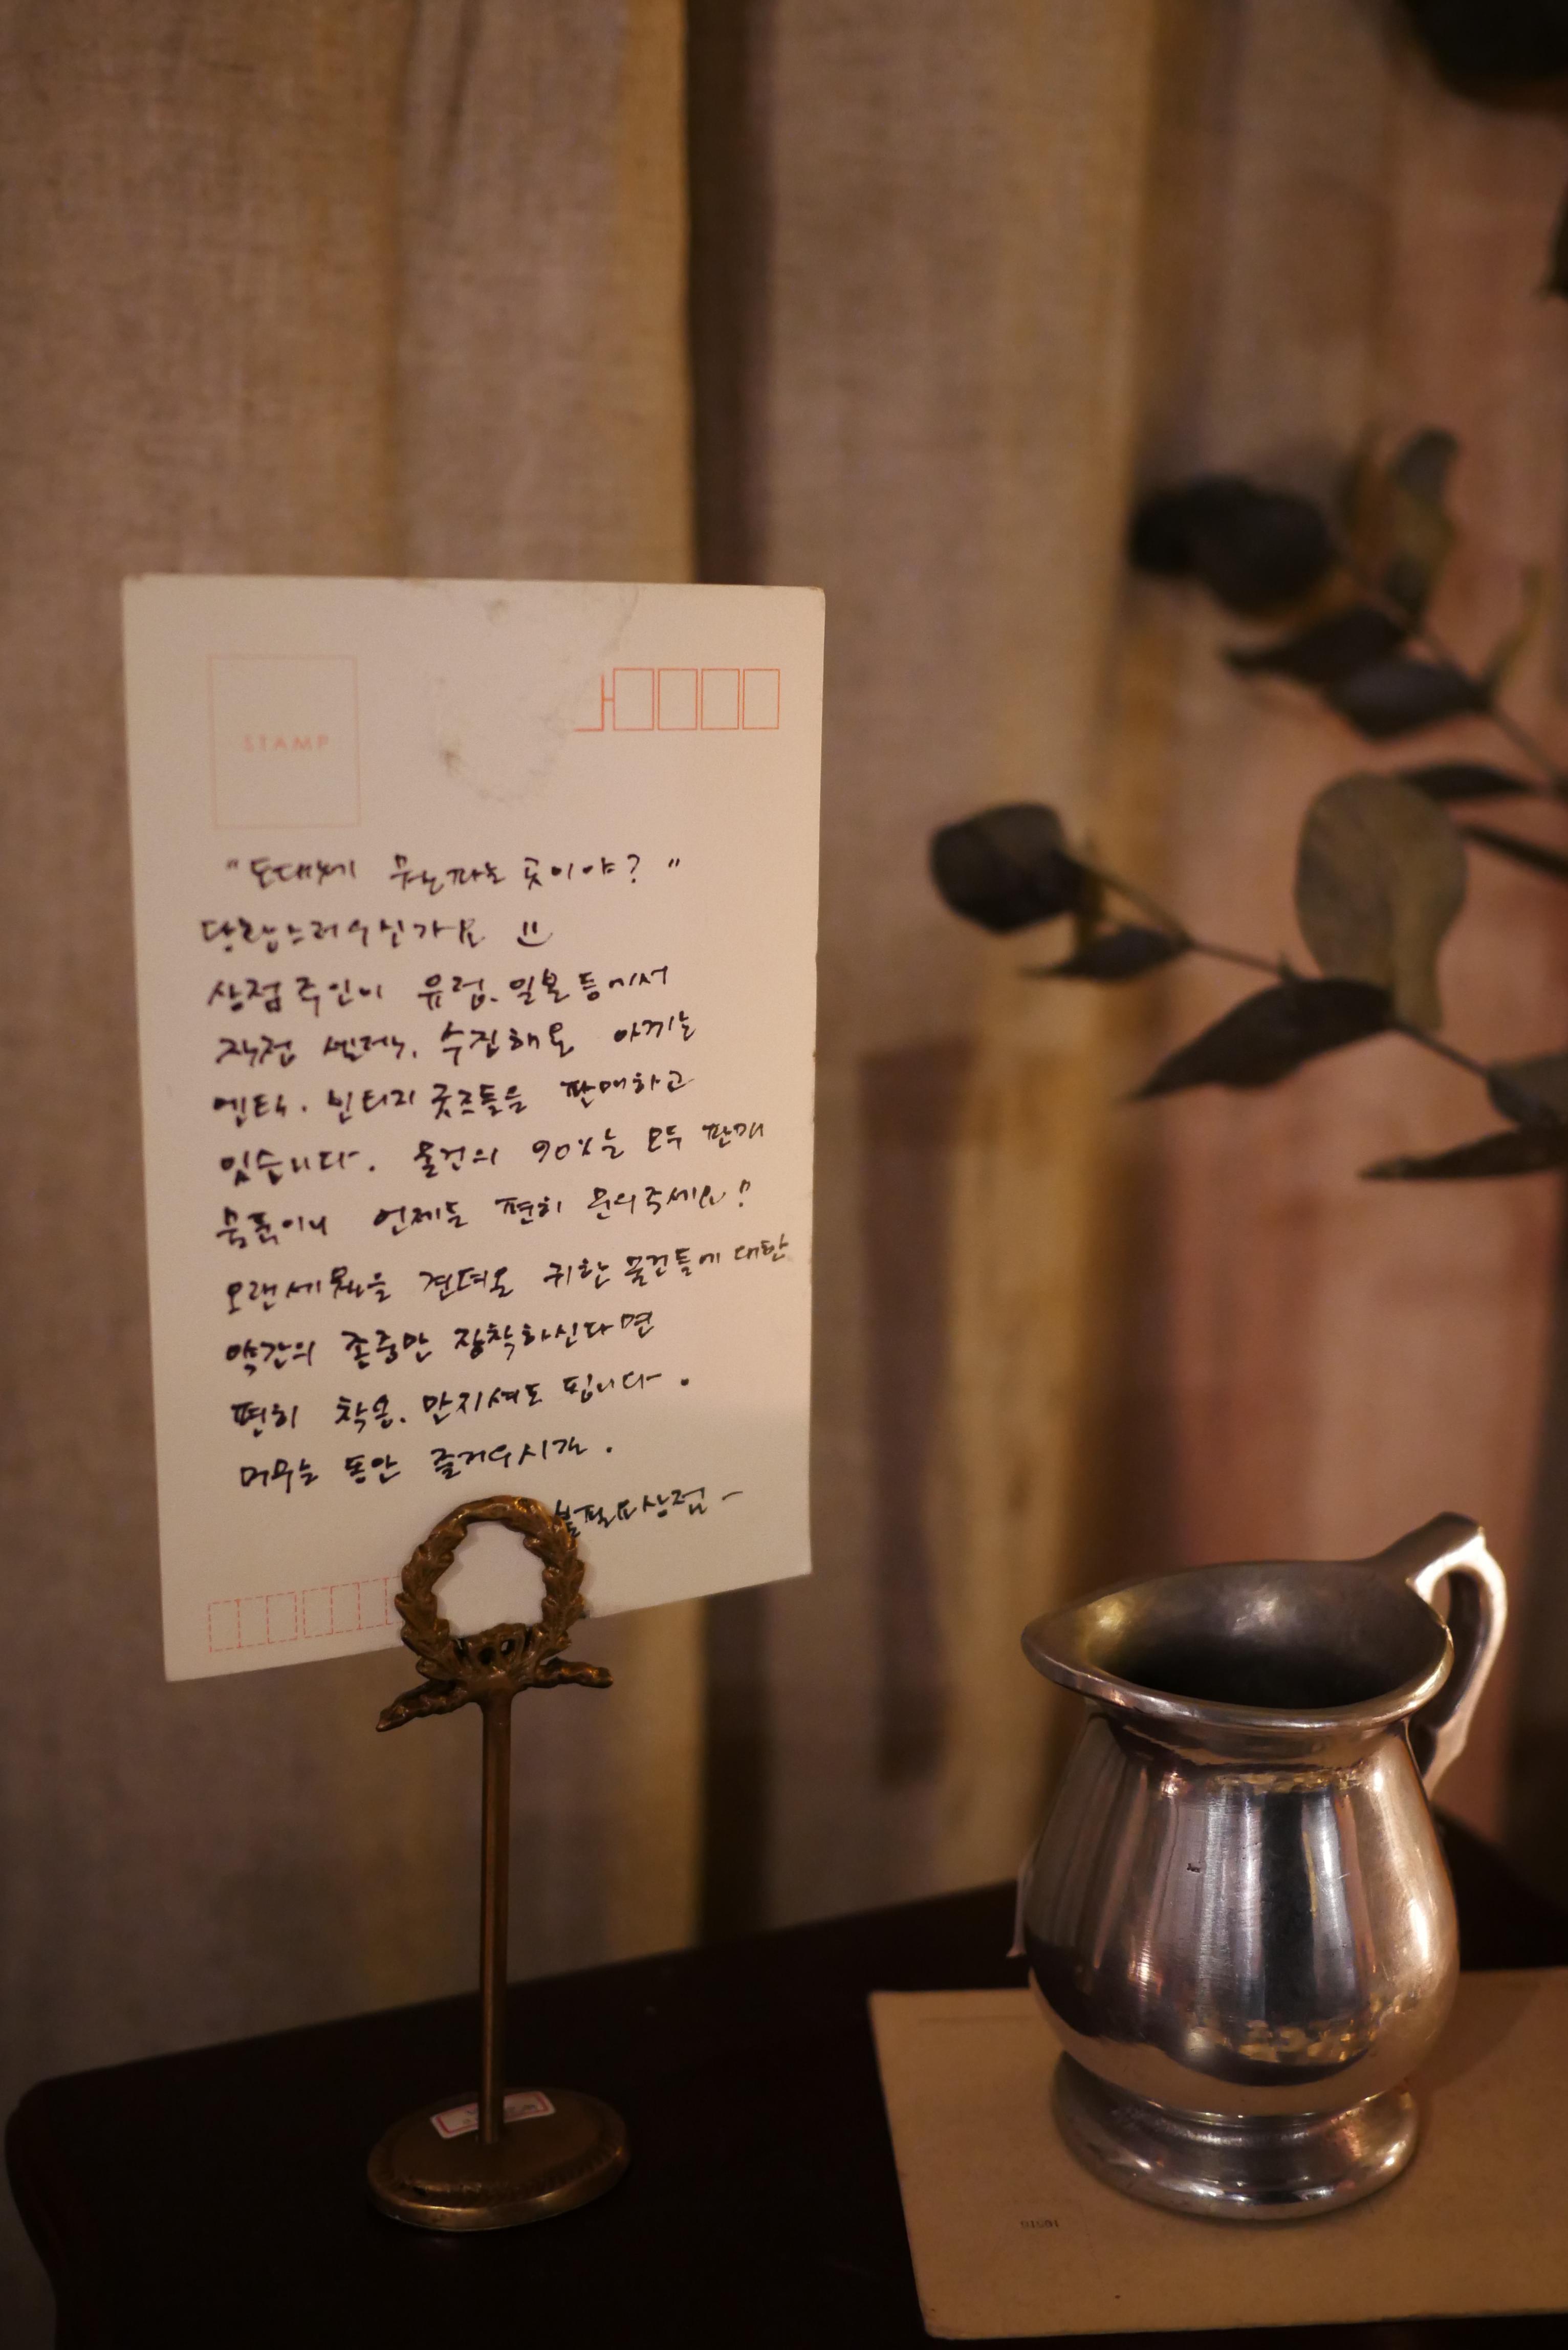 STAMP
"도대체 무얼 파는 곳이야?"
당황스러우신가요
상점주인이 유럽. 일본 등에서
직접 셀렉, 수집해온 아끼는
엔틱. 빈티지 굿즈들을 판매하고
있습니다. 물건의 90%는 모두 판매
물품이니 언제든 편히 문의주세요!
오랜세월을 견뎌온 귀한 물건들에 대한
약간의 존중만 장착하신다면
편히 착용. 만지셔도 됩니다.
머무는 동안 즐거우시길.
불필요상점-